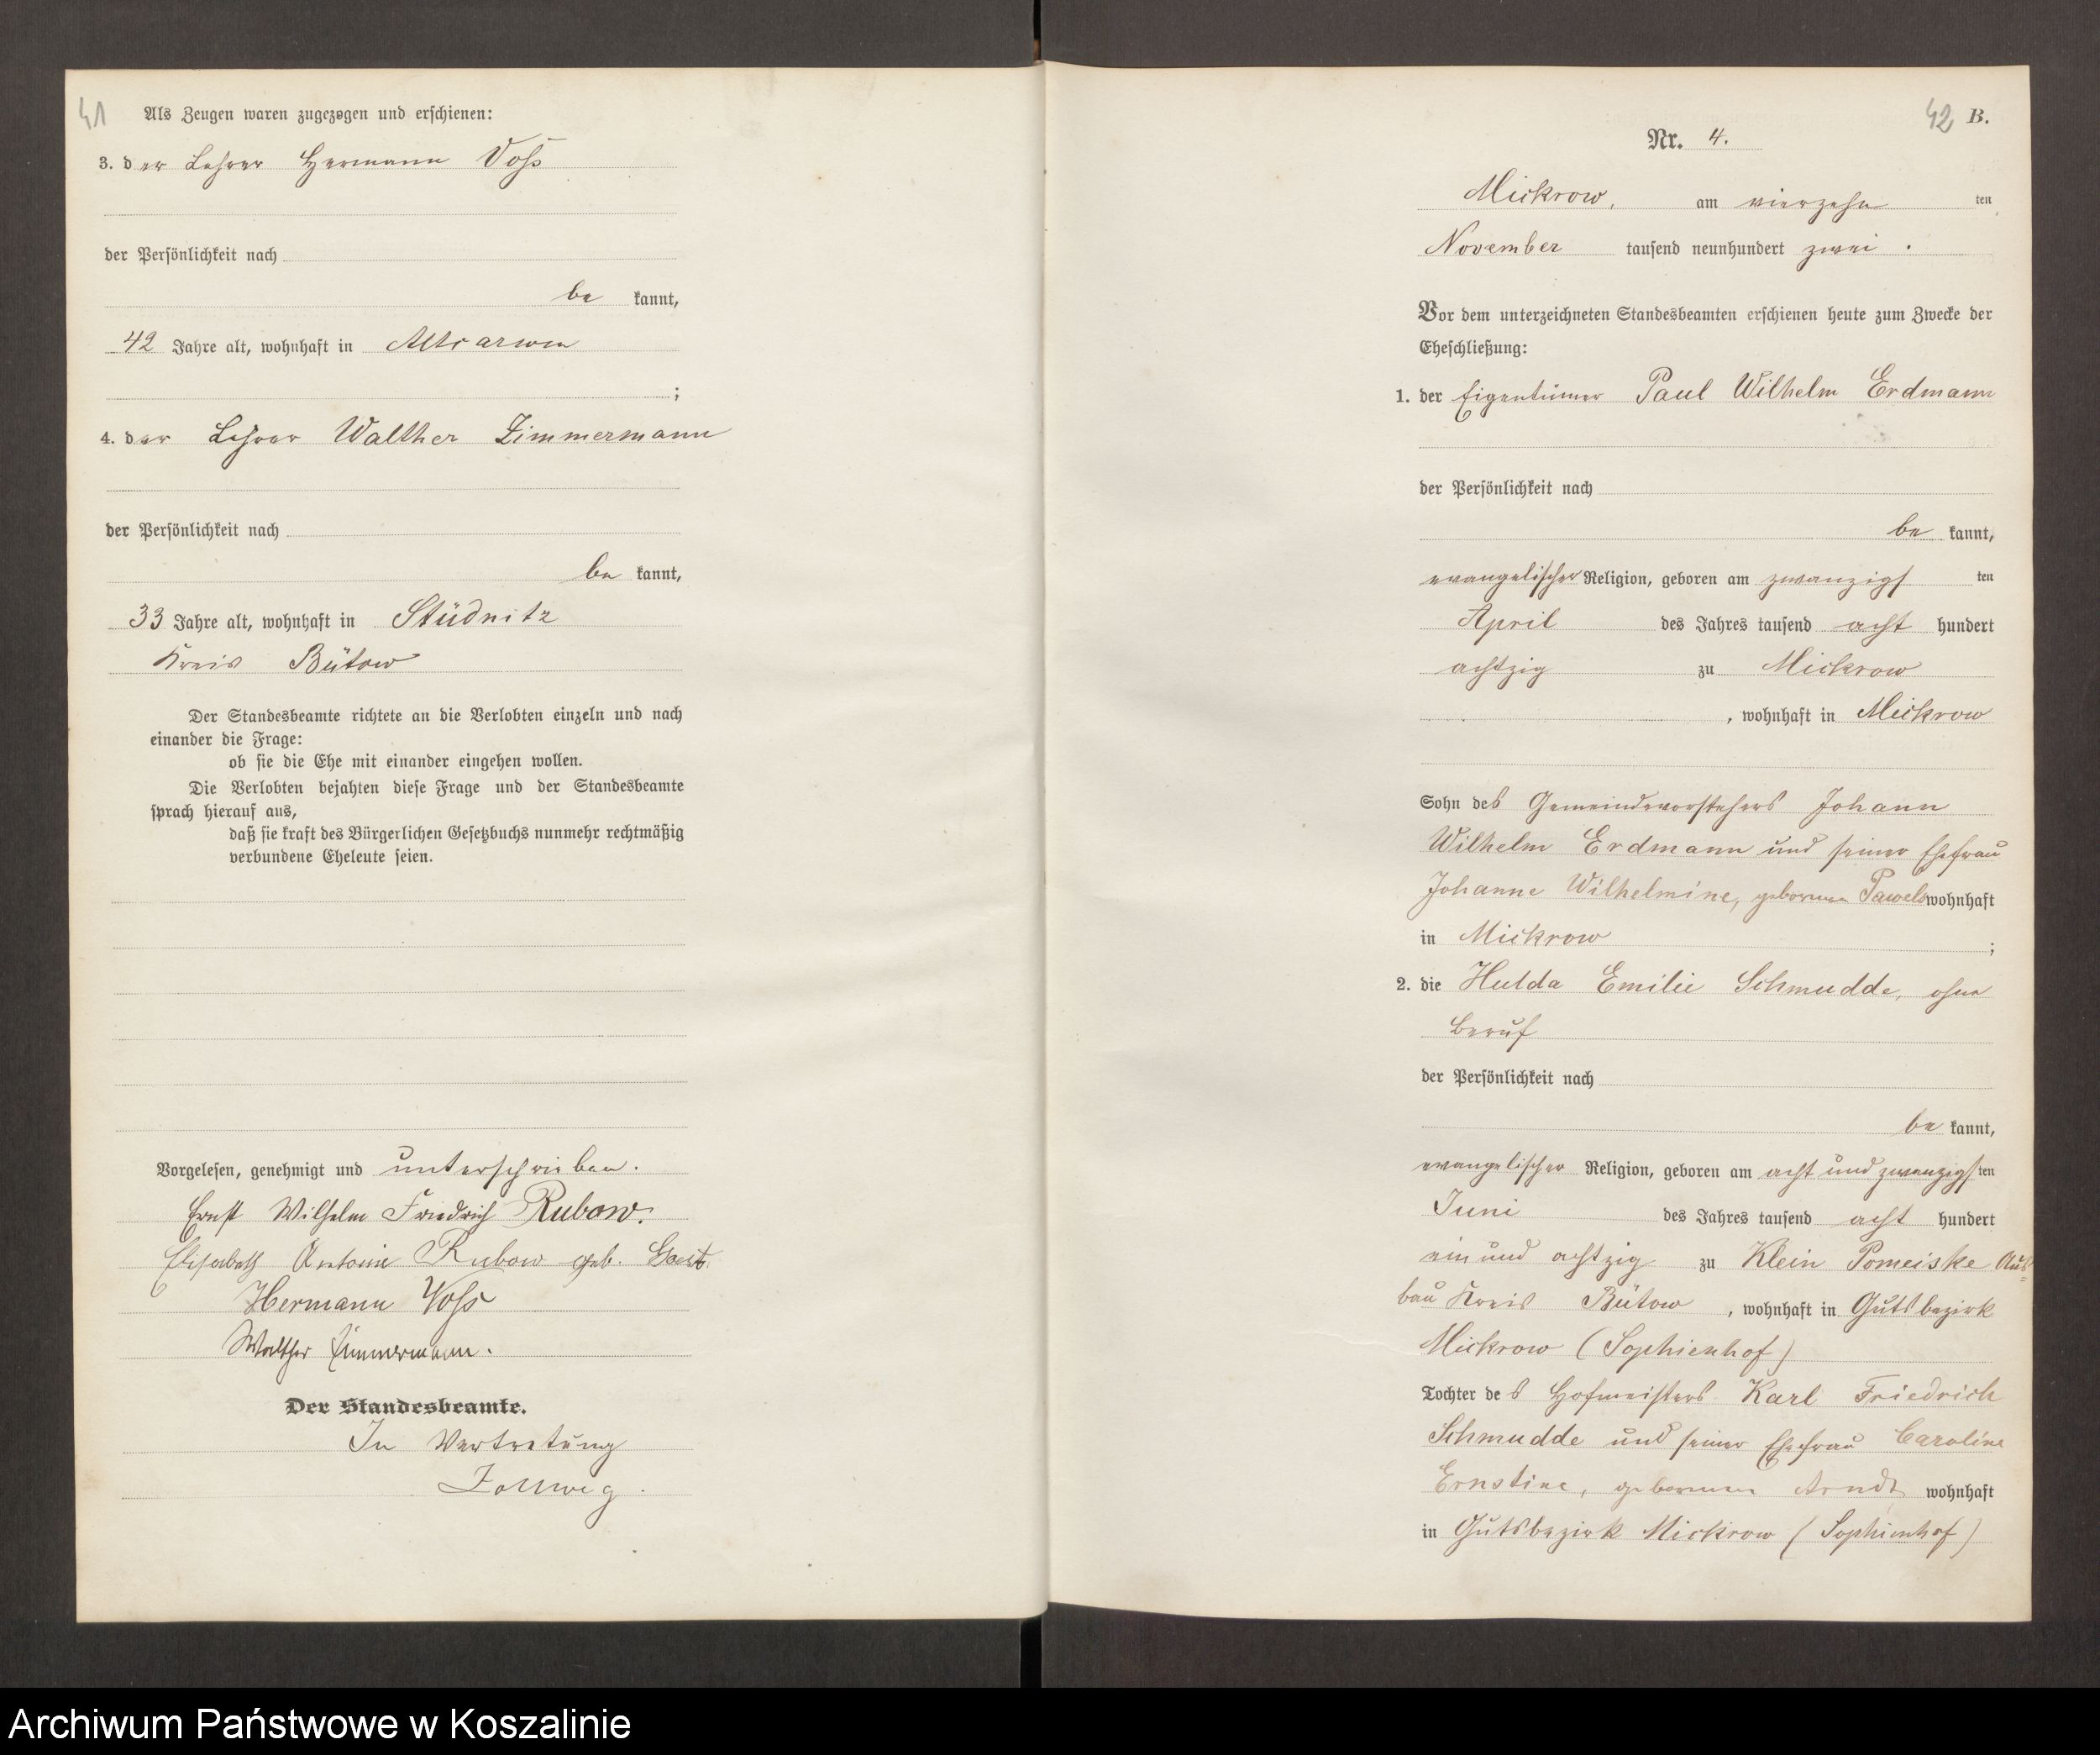 41
Als Zeugen waren zugezogen und erschienen:
3. der Lehrer Hermann Voß
der Persönlichkeit nach
be kannt,
42 Jahre alt, wohnhaft in Altsarwen
;
4. der Lehrer Walther Zimmermann
der Persönlichkeit nach
be kannt,
33 Jahre alt, wohnhaft in Stüdnitz
Kreis Bütow
Der Standesbeamte richtete an die Verlobten einzeln und nach
einander die Frage:
ob sie die Ehe mit einander eingehen wollen.
Die Verlobten bejahten diese Frage und der Standesbeamte
sprach hierauf aus,
daß sie kraft des Bürgerlichen Gesetzbuchs nunmehr rechtmäßig
verbundene Eheleute seien.
Vorgelesen, genehmigt und unterschrieben.
Ernst Wilhelm Friedrich Rubow.
Elisabeth Antonie Rubow geb.
Hermann Voß
Walther Zimmermann.
Der Standesbeamte.
In Vertretung
Zollweg.
42 B.
Nr. 4.
Mickrow, am vierzehn ten
November tausend neunhundert zwei.
Vor dem unterzeichneten Standesbeamten erschienen heute zum Zwecke der
Eheschließung:
1. der Eigentümer Paul Wilhelm Erdmann
der Persönlichkeit nach
be kannt,
evangelischer Religion, geboren am zwanzigs ten
April des Jahres tausend acht hundert
achtzig zu Mickrow
, wohnhaft in Mickrow
Sohn des Gemeindevorstehers Johann
Wilhelm Erdmann und seiner Ehefrau
Johanne Wilhelmine, geborenen Pawels wohnhaft
in Mickrow ;
2. die Hulda Emilie Schmudde, ohne
Beruf
der Persönlichkeit nach
be kannt,
evangelischer Religion, geboren am acht und zwanzigs ten
Juni des Jahres tausend acht hundert
ein und achtzig zu Klein Pomeiske Aus=
bau Kreis Bütow , wohnhaft in Gutsbezirk
Mickrow (Sophienhof)
Tochter des Hofmeisters Karl Friedrich
Schmudde und seiner Ehefrau Caroline
Ernstine, geborenen Arndt wohnhaft
in Gutsbezirk Mickrow (Sophienhof)
Archiwum Państwowe w Koszalinie